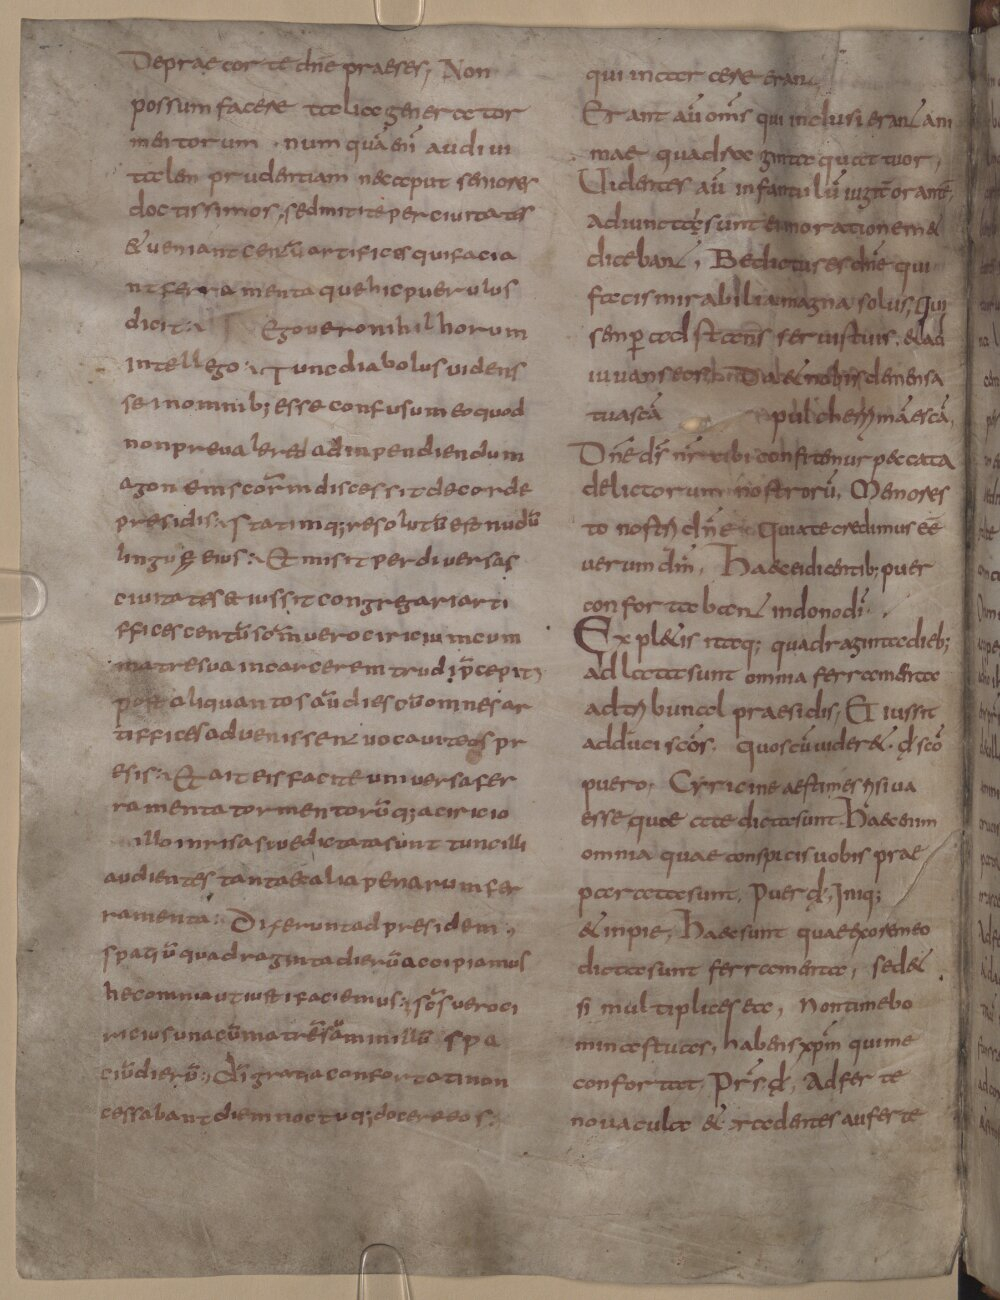 Deprae cor te dn̄e praeses, Non
possum facere talia genera tor
mentorum · num quā enī audiui
talem prudentiam nec caput seniores
doctissimos, sed mitte per ciuitates
& ueniant centū artifices qui facia
nt ferramenta que hic puerulus
dicit: Ego uero nihil horum
intellego: Tunc diabolus uidens
se in omnib; esse confusum eo quod
non preualer& ad inpendiendum
agonem scōrm discessit de corde
presidis: Statimq; resolutū est nudū
linguę eius: Et misit per diuersas
ciuitates et iussit congregari arti
ffices centū scm̄ uero ciriciū cum
matre sua in carcerem trudi p̄cepit,
post aliquantos aū dies cū omnes ar
tiffices aduenissent uocauit eos pr
esis: Et ait eis facite uniuersa fer
ramenta tormentorū q; a ciricio
illo inrisasiue dictata sunt tunc illi
audientes tanta & alia penarum fer
ramenta: Dixerunt ad presidem,
spatiū quadraginta dierū accipiamus
hec omnia ut iusti faciemus: scs̄ uero ci
ricius una cū matre sā in illū spa
ciū dierū, dī gratia confortati non
cessabant diem noctuq; docere eos:
qui in carcere erant,
Erant aū om̄s qui inclusi erant ani
mae quadraginta quattuor,
Uidentes aū infantulū iugit̄ orantē,
adiuncta sunt ei in orationem &
diceban&, Bedictus es dn̄e qui
facis mirabilia magna solus, Qui
semp̄ ad st̄ cans seruis tuis, & ad
iuuans eos Da & nobis clemensa
tua scā pulcherrimā escā,
Dn̄e ds̄ nr̄ tibi confitemur peccata
delictorum nostrorū, Memores
to nostri dn̄e Quia te credimus eē
uerum dm̄, Haec eidicentib; puer
confortabatur in dono dī
Expl&is itaq; quadraginta dieb;
ad lata sunt omnia ferramenta
ad tribunal praesidis, Et iussit
adduci scōs. quos cū uider&. d̄ scō
puero, Cyricine aestimes si ua
esse quae a te dicta sunt Haec enim
omnia quae conspicis uobis prae
parata sunt, Puer d̄, Iniq;
& inpie, Haec sunt quae ex ore meo
dicta sunt ferramenta, sed &
si multiplices ea, Non timebo
minas tuas, habens xp̄m qui me
confortat, Prs̄ d̄, Adfer te
nouacula & accedentes auferte